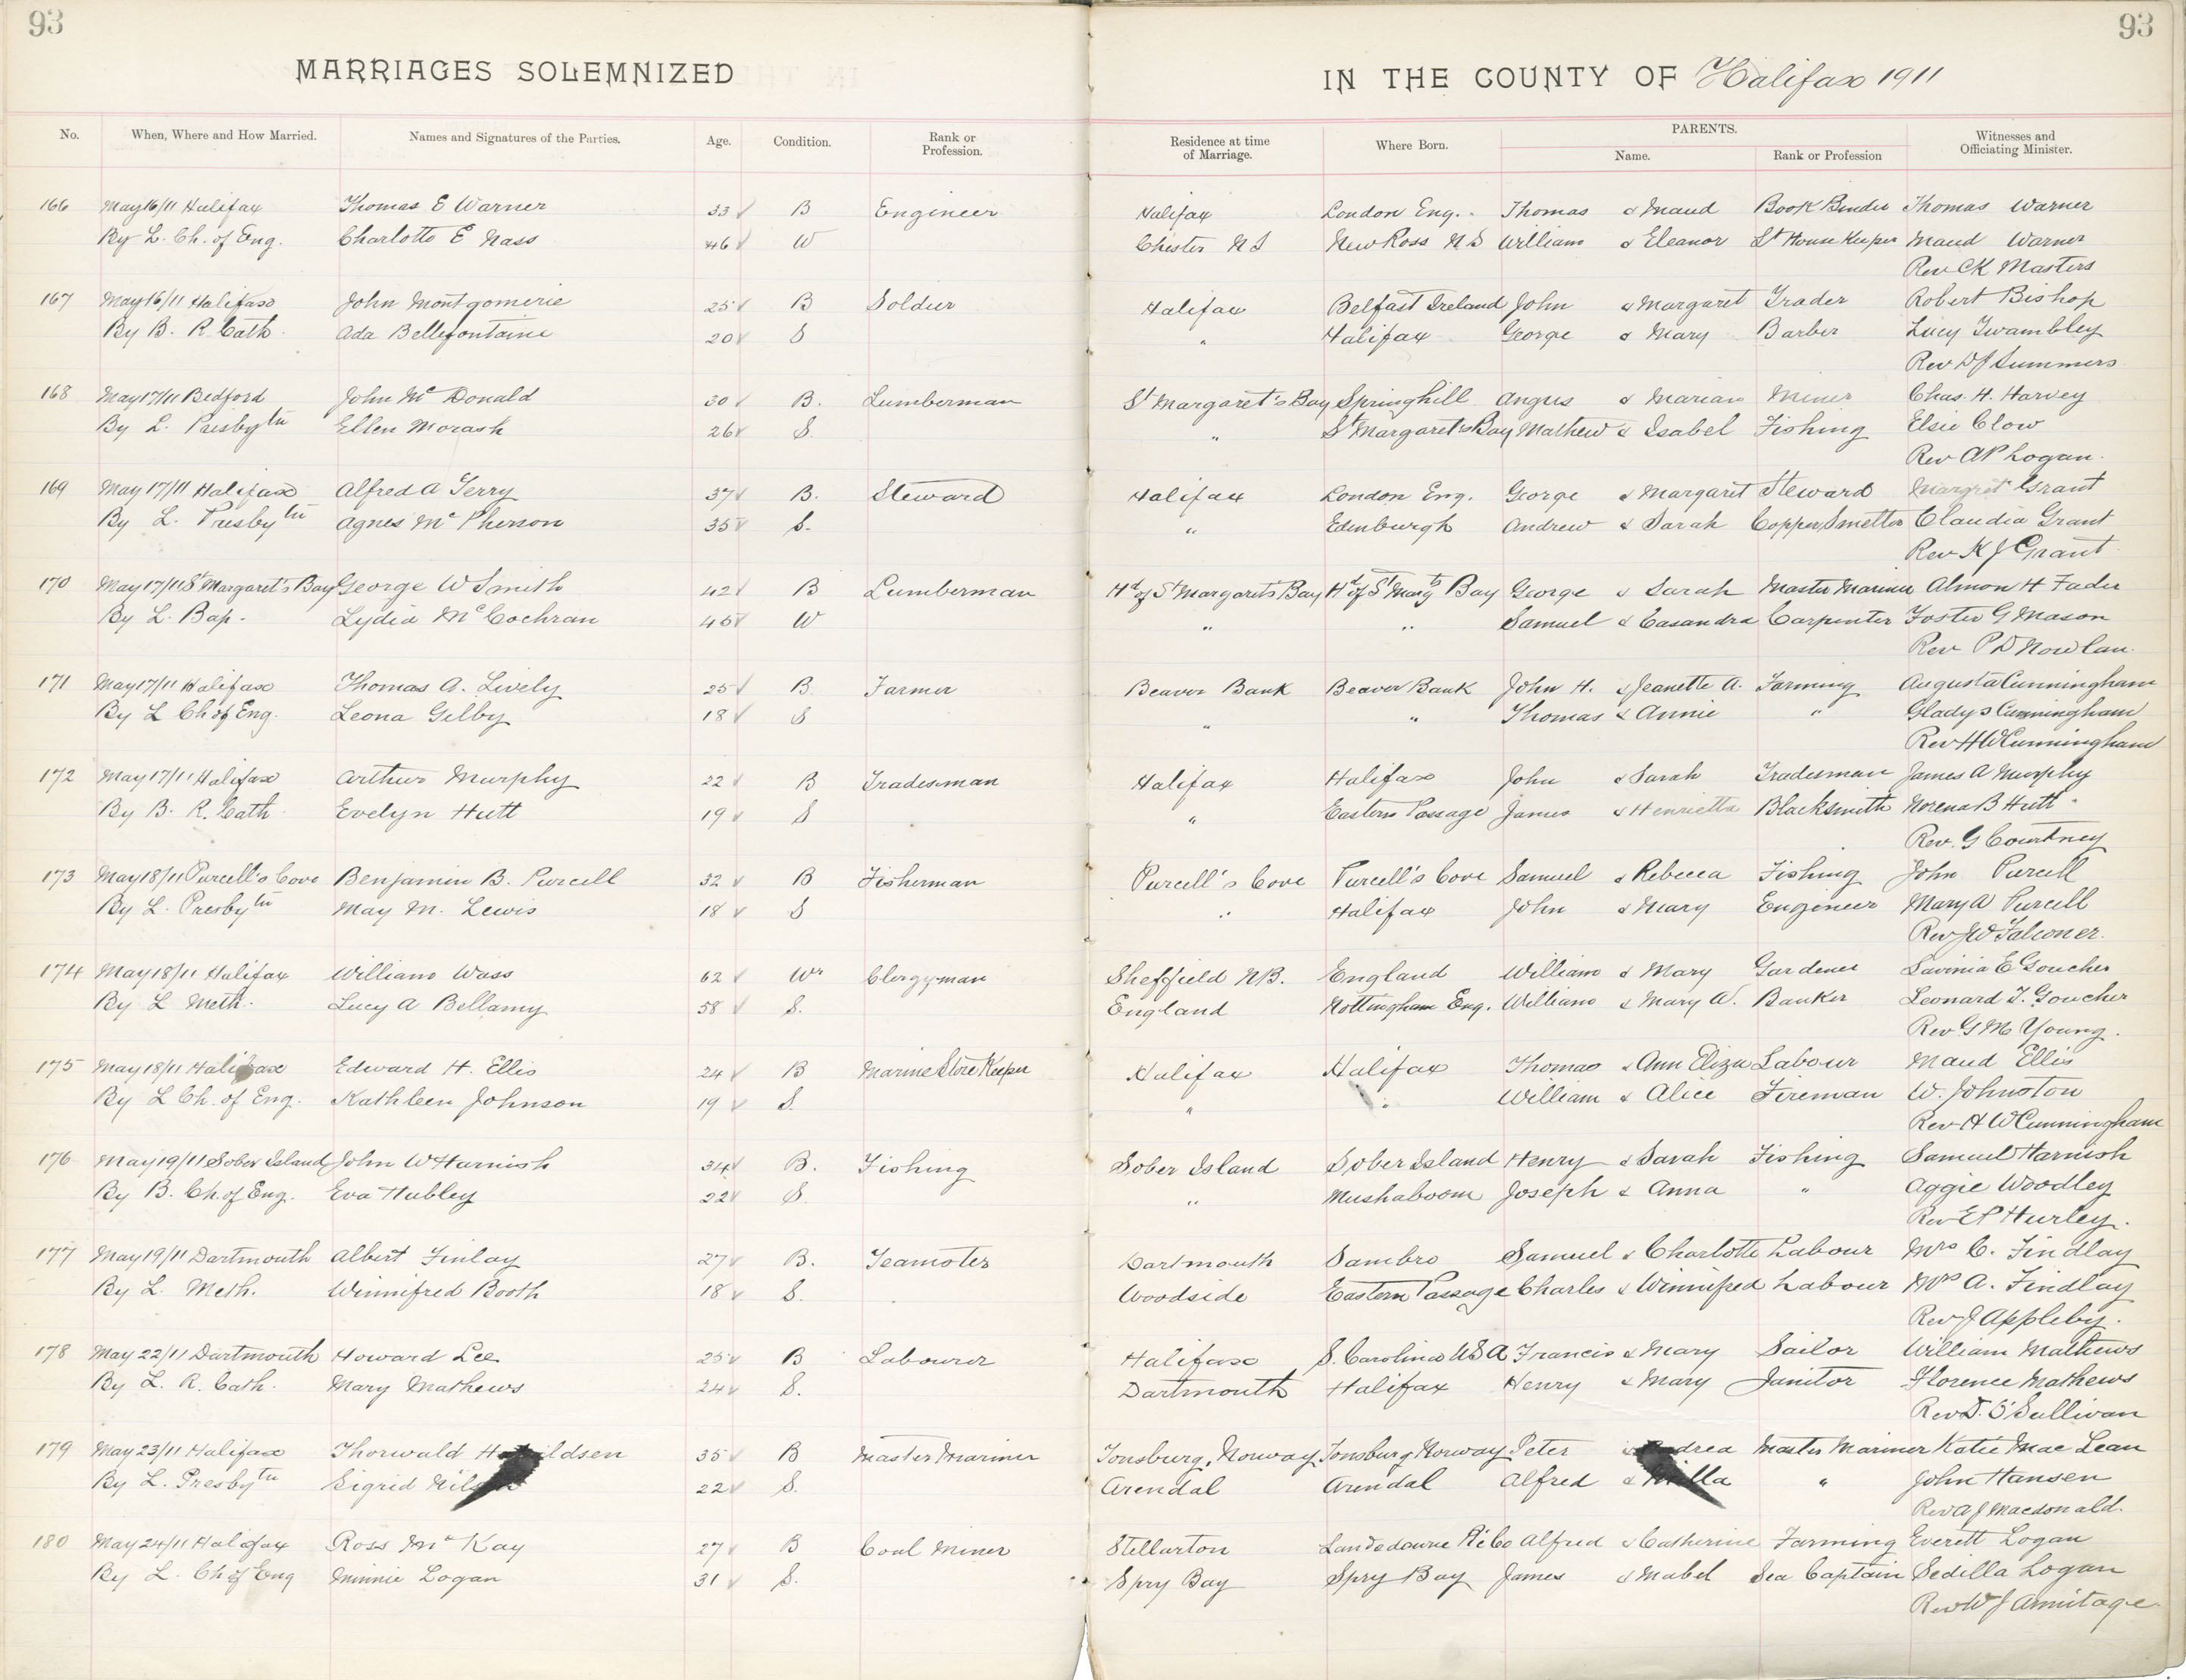 93
93
MARRIAGES SOLEMNIZED
IN THE COUNTY OF Halifax 1911
No. When, Where and How Married. Names and Signatures of the Parties. Age. Condition. Rank or Profession. Residence at time of Marriage. Where Born. PARENTS. Name. Rank or Profession Witnesses and Officiating Minister.
166 May 16/11 Halifax Thomas E Warner 33 B Engineer Halifax London Eng. Thomas & Maud Book Binder Thomas Warner
By L. Ch. of Eng. Charlotte E Nass 46 W Chester N S New Ross N S William & Eleanor Lt House Keeper Maud Warner
Rev CK Masters
167 May 16/11 Halifax John Montgomerie 25 B Soldier Halifax Belfast Ireland John & Margaret Trader Robert Bishop
By B. R. Cath. Ada Bellefontaine 20 S " Halifax George & Mary Barber Lucy Twambley
Rev D J Summers
168 May 17/11 Bedford John Mc Donald 30 B. Lumberman St Margaret's Bay Springhill Angus & Marian Miner Chas. H. Harvey
By L. Presbytn Ellen Morash 26 S. " St Margaret's Bay Mathew & Isabel Fishing Elsie Clow
Rev AP Logan.
169 May 17/11 Halifax Alfred A Terry 37 B. Steward Halifax London Eng. George & Margaret Steward Margret Grant
By L. Presbytn Agnes Mc Pherson 35 S. " Edinburgh Andrew & Sarah Copper Smelter Claudia Grant
Rev K J Grant
170 May 17/11 St Margaret's Bay George W Smith 42 B Lumberman Hd of St Margarets Bay Hd of St Margts Bay George & Sarah Master Mariner Almon H Fader
By L. Bap. Lydia McCochran 45 W " " Samuel & Casandra Carpenter Foster G Mason
Rev P D Nowlan.
171 May 17/11 Halifax Thomas A. Lively 25 B Farmer Beaver Bank Beaver Bank John H. & Jeanette A. Farming Augusta Cunningham
By L Ch of Eng. Leona Gilby 18 S " " Thomas & Annie " Gladys Cunningham
Rev H W Cunningham
172 May 17/11 Halifax Arthur Murphy 22 B Tradesman Halifax Halifax John & Sarah Tradesman James A Murphy
By B. R. Cath. Evelyn Hutt 19 S " Eastern Passage James & Henrietta Blacksmith Norena B Hutt
Rev. G Courtney
173 May 18/11 Purcell's Cove Benjamin B. Purcell 32 B Fisherman Purcell's Cove Purcell's Cove Samuel & Rebecca Fishing John Purcell
By L. Presbytn May M. Lewis 18 S " Halifax John & Mary Engineer Mary A Purcell
Rev JW Falconer.
174 May 18/11 Halifax William Wass 62 Wr Clergyman Sheffield N.B. England William & Mary Gardener Lavinia E Goucher
By L Meth. Lucy A Bellamy 58 S. England Nottingham Eng. William & Mary A. Banker Leonard T. Goucher
Rev G M Young.
175 May 18/11 Halifax Edward H. Ellis 24 B Marine Store Keeper Halifax Halifax Thomas & Ann Eliza Labour Maud Ellis
By L Ch. of Eng. Kathleen Johnson 19 S. " " William & Alice Fireman W. Johnston
Rev H W Cunningham
176 May 19/11 Sober Island John W Harnish 34 B. Fishing Sober Island Sober Island Henry & Sarah Fishing Samuel Harnish
By B. Ch. of Eng. Eva Hubley 22 S. " Mushaboom Joseph & Anna " Aggie Woodley
Rev E P Hurley.
177 May 19/11 Dartmouth Albert Finlay 27 B. Teamster Dartmouth Sambro Samuel & Charlotte Labour Mrs C. Findlay
By L. Meth. Winnifred Booth 18 S. Woodside Eastern Passage Charles & Winnifred Labour Mrs A. Findlay
Rev J Appleby.
178 May 22/11 Dartmouth Howard Lee 25 B Labourer Halifax S. Carolina USA Francis & Mary Sailor William Mathews
By L. R. Cath. Mary Mathews 24 S. Dartmouth Halifax Henry & Mary Janitor Florence Mathews
Rev D. O'Sullivan
179 May 23/11 Halifax Thorwald 35 B Master Mariner Tonsburg, Norway Tonsburg Norway Peter Master Mariner Katie Mac Lean
By L. Presbytn Sigrid 22 S. Arendal Arendal Alfred & " John Hansen
Rev A J Macdonald.
180 May 24/11 Halifax Ross Mc Kay 27 B Coal Miner Stellarton Landsdowne Pi Co Alfred & Catherine Farming Everett Logan
By L. Ch of Eng Minnie Logan 31 S. Spry Bay Spry Bay James & Mabel Sea Captain Sedilla Logan
Rev W J Armitage